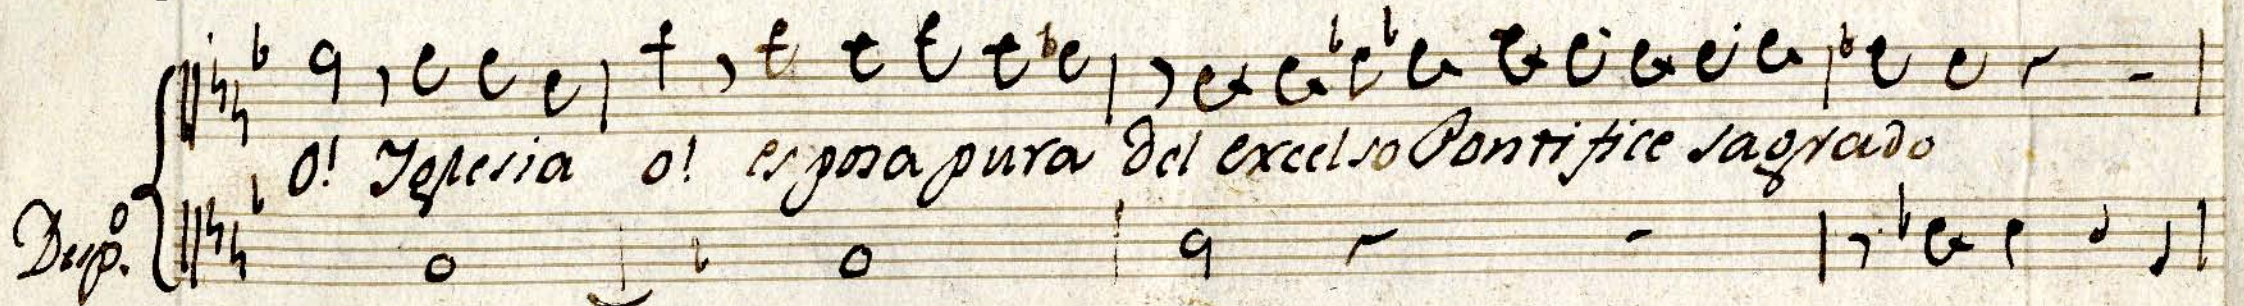 O! Iglesia o! esposa pura Del excelso Pontifice sagrado
Desp.º